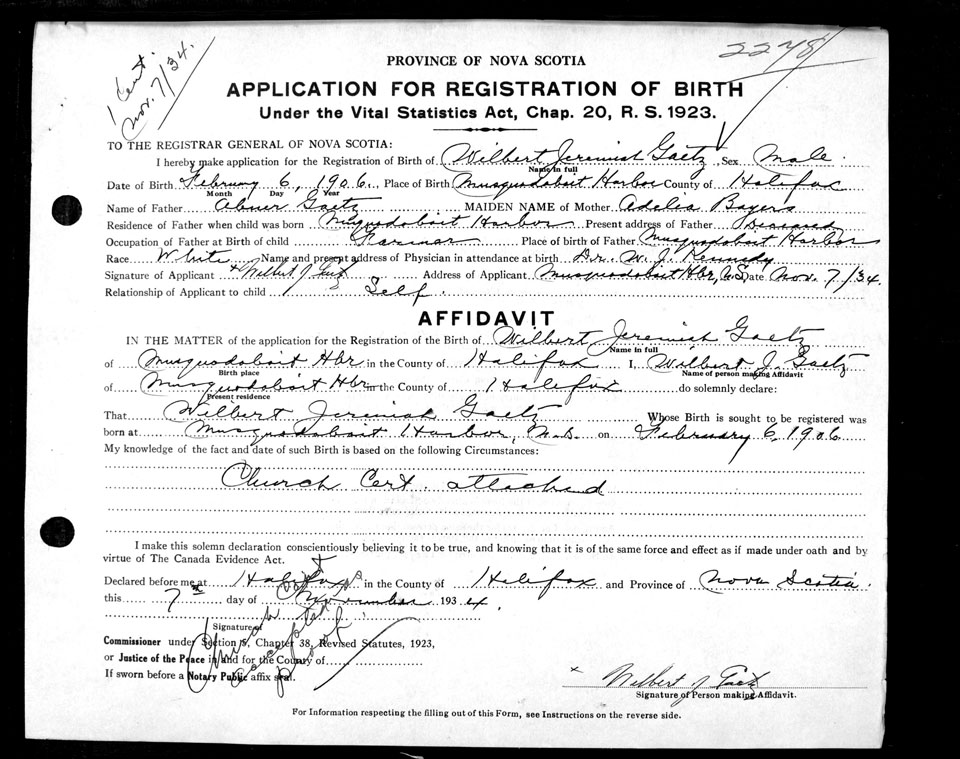 2248
1 Cert.
Nov. 7/34.
PROVINCE OF NOVA SCOTIA
APPLICATION FOR REGISTRATION OF BIRTH
Under the Vital Statistics Act, Chap. 20, R. S. 1923.
TO THE REGISTRAR GENERAL OF NOVA SCOTIA:
I hereby make application for the Registration of Birth of Wilbert Jeremiah Gaetz Sex Male.
Name in full
Date of Birth February 6, 1906. Place of Birth Musquodoboit Harbor County of Halifax
Month Day Year
Name of Father Abner Gaetz MAIDEN NAME of Mother Adelia Bayers
Residence of Father when child was born Musquodoboit Harbor Present address of Father Deceased
Occupation of Father at Birth of child Farmer Place of birth of Father Musquodoboit Harbor
Race White Name and present address of Physician in attendance at birth Dr. W. J. Kennedy
Signature of Applicant x Wilbert J Gaetz Address of Applicant Musquodoboit Hbr, N.S. Date Nov. 7/34.
Relationship of Applicant to child Self.
AFFIDAVIT
IN THE MATTER of the application for the Registration of the Birth of Wilbert Jeremiah Gaetz
Name in full
of Musquodoboit Hbr. in the County of Halifax I, Wilbert J. Gaetz
Birth place Name of person making Affidavit
of Musquodoboit Hbr in the County of Halifax do solemnly declare:
Present residence
That Wilbert Jeremiah Gaetz Whose Birth is sought to be registered was
born at Musquodoboit Harbor, N.S. on February 6, 1906
My knowledge of the fact and date of such Birth is based on the following Circumstances:
Church Cert. attached
I make this solemn declaration conscientiously believing it to be true, and knowing that it is of the same force and effect as if made under oath and by
virtue of The Canada Evidence Act.
Declared before me at Halifax in the County of Halifax and Province of Nova Scotia.
this 7th day of November 1934.
Signature of
Commissioner under Section 5, Chapter 38, Revised Statutes, 1923,
or Justice of the Peace in and for the County of
If sworn before a Notary Public affix seal.
Church
accepted
proof
x Wilbert J Gaetz
Signature of Person making Affidavit.
For Information respecting the filling out of this Form, see Instructions on the reverse side.